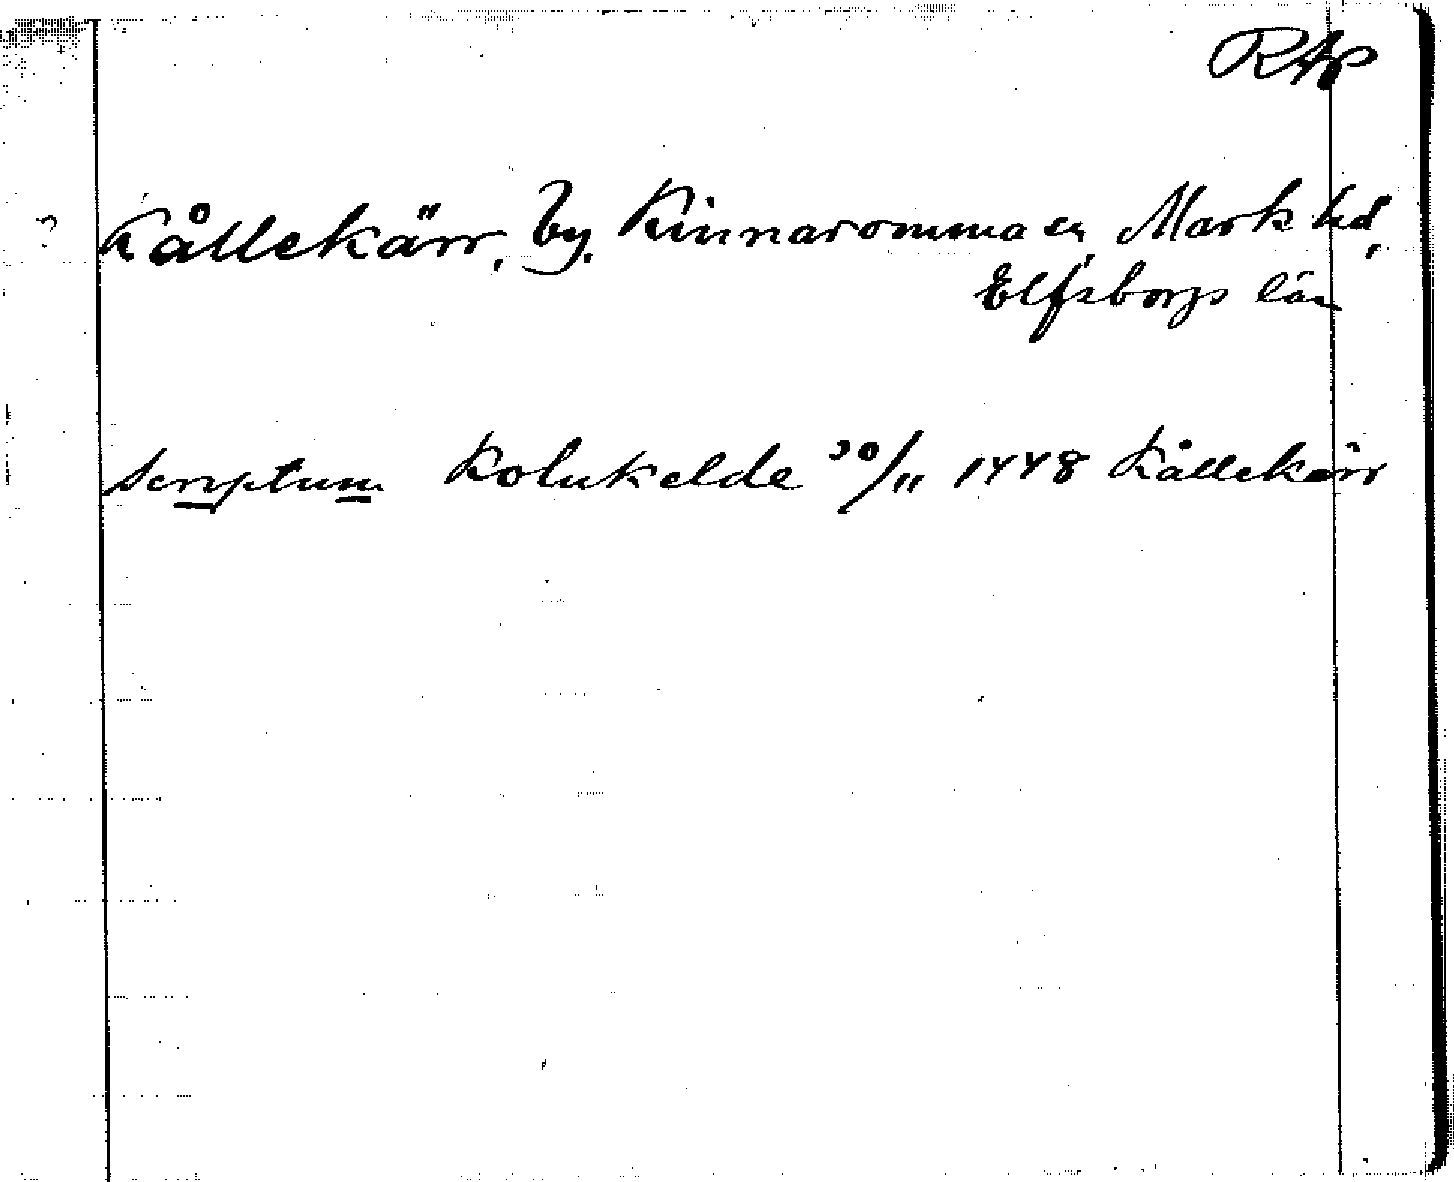 RAP
? Kållekärr, by. Kinnaromma sn, Mark hd,
Elfsborgs län
Scriptum Kolnkelde 30/11 1448 Kållekärr